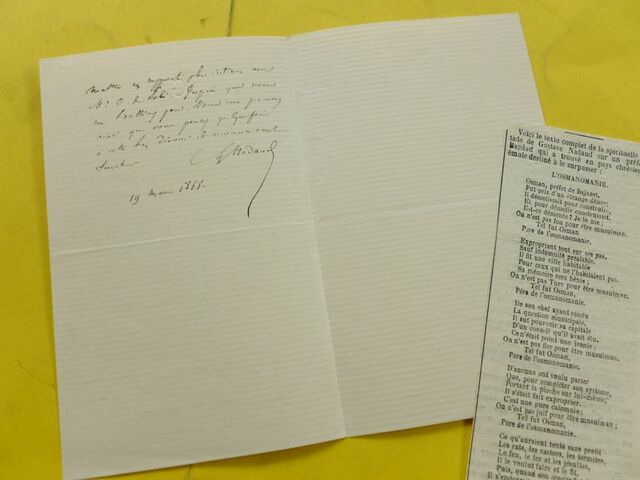 mettre en rapport plus intime avec
Mr O. de
que
ainsi que vous pensez quelquefois
à votre bien
serviteur
GNadaud
19 mars 1868.
Voici le texte complet de la spirituelle
tade de Gustave Nadaud sur un préf
Bardad qui a trouvé en pays chrétien
émule destiné à le surpasser :
L'OSMANOMANIE.
Osman, préfet de Bajazet,
Fut pris d'un étrange
Il démolissait pour construire,
Et pour démolir construisait.
Est-ce démence? Je le nie ;
On n'est pas fou pour être musulman.
Tel fut Osman
Père de l'osmanomanie.
Expropriant tout sur ses pas,
Sauf indemnité préalable,
Il fit une ville habitable
Pour ceux qui ne l'habitaient pas.
Sa mémoire sera bénie ;
On n'est pas Turc pour être musulman.
Tel fut Osman,
Père de l'osmanomanie.
De son chef ayant résolu
La question municipale,
Il sut pourvoir sa capitale
D'un conseil qu'il avait élu.
Ce n'était point une ironie ;
On n'est pas fier pour être musulman.
Tel fut Osman,
Père de l'osmanomanie.
D'aucuns ont voulu parier
Que, pour compléter son système,
Portant la pioche sur lui-même,
Il s'était fait exproprier.
C'est une pure calomnie ;
On n'est pas juif pour être musulman.
Tel fut Osman,
Père de l'osmanomanie.
Ce qu'auraient tenté sans profit
Les rats, les castors, les termites,
Le feu, le fer et les jésuites,
Il le voulut faire et le fit,
Puis, quand son